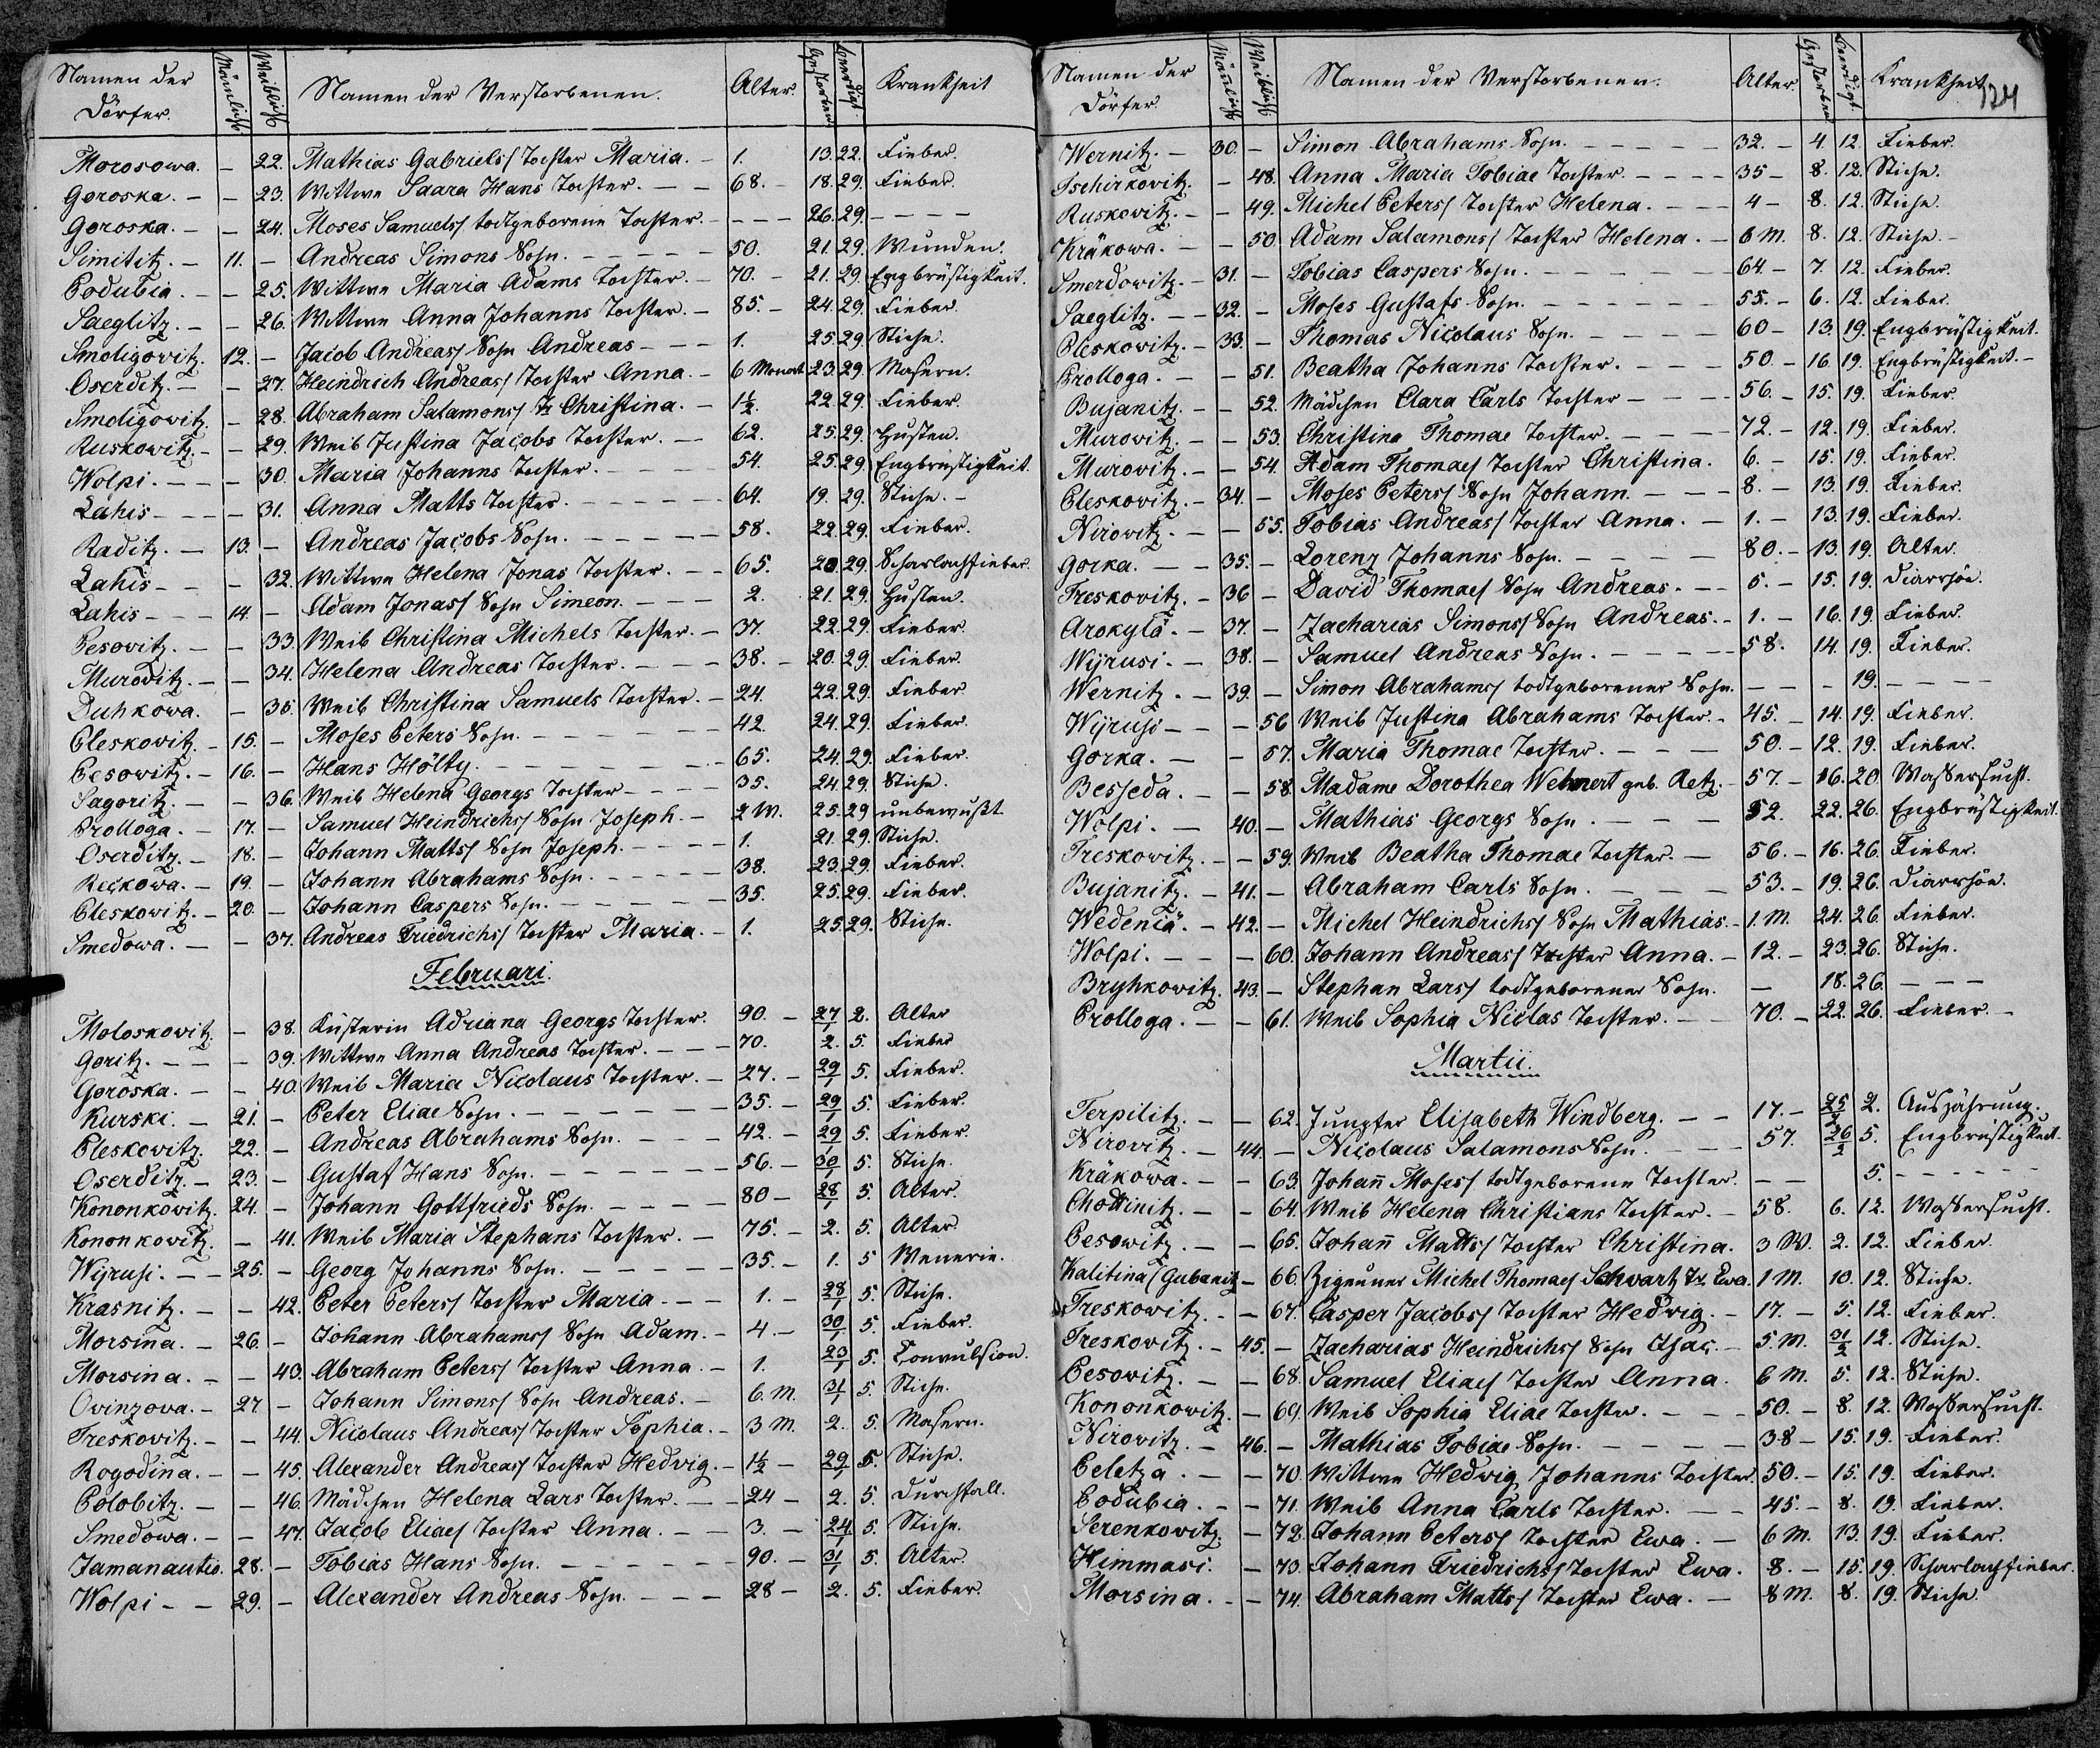 Namen der Dörfer. Männliche Weibliche Namen der Verstorbenen. Alter. Gestorben. beerdigt. Krankheit
Morosowa. — 22. Mathias Gabriels/ Tochter Maria. — 1. 13. 22. Fieber.
Goroska. — — 23. Wittwe Saara Hans Tochter. — — 68. — 18. 29. Fieber.
Goroska. — — 24. Moses Samuels/ todtgeborene Tochter. — — — 26. 29. — — — —
Simititz. — 11. — Andreas Simons Sohn. — — — — — 50. 21. 29. Wunden.
Podubia. — — 25. Wittwe Maria Adams Tochter. — 70. — 21. 29. Engbrüstigkeit.
Saeglitz. — — 26. Wittwe Anna Johanns Tochter. — 85. — 24. 29. Fieber.
Smoligovitz. 12. — Jacob Andreas/ Sohn Andreas — — — 1. 25. 29. Stiche.
Oserditz. — — 27. Heindrich Andreas/ Tochter Anna. — 6 Monat 23. 29. Masern.
Smoligowitz. — 28. Abraham Salamons/ Tr Christina. — 1½. 22. 29. Fieber.
Ruskowitz. — — 29. Weib Justina Jacobs Tochter. — 62. 25. 29. Husten.
Wolpi. — — — 30. Maria Johanns Tochter. — — — — 54. 25. 29. Engbrüstigkeit.
Lahis — — — 31. Anna Matts Tochter. — — — — — 64. 19. 29. Stiche. —
Raditz. — 13. — Andreas Jacobs Sohn. — — — — — 58. 22. 29. Fieber.
Lahis — — — 32. Wittwe Helena Jonas Tochter. — — 65. 20. 29. Scharlachfieber.
Lahis — — — 14. — Adam Jonas/ Sohn Simeon. — — — 2. 21. 29. Husten.
Pesovitz. — — 33. Weib Christina Michels Tochter. — 37. 22. 29. Fieber.
Muroditz. — — 34. Helena Andreas Tochter. — — — — 38. — 20. 29. Fieber.
Duhkowa. — 35. Weib Christina Samuels Tochter. — 24. 22. 29. Fieber.
Pleskovitz. — 15. — Moses Peters Sohn. — — — — — — 42. 24. 29. Fieber.
Pesowitz. — 16. — Hans Hölty. — — — — — — — — 65. 24. 29. Fieber.
Sagoritz. — — 36. Weib Helena Georgs Tochter — — — 35. 24. 29. Stiche.
Prolloga. — 17. — Samuel Heindrichs/ Sohn Joseph. — 2 W. 25. 29 unbewußt
Oserditz. — 18. — Johann Matts/ Sohn Joseph. — — — 1. 21. 29. Stiche.
Reckowa. — 19. — Johann Abrahams Sohn. — — — — 38. 23. 29. Fieber.
Pleskowitz. — 20. — Johann Caspers Sohn. — — — — — 35. 25. 29. Fieber.
Smedowa. — — 37. Andreas Friedrichs/ Tochter Maria. — 1. 25. 29. Stiche.
Februari.
Moloskowitz. — 38. Küsterin Adriana Georgs Tochter. 90. — 27/1 2. Alter
Goritz. — — — 39. Wittwe Anna Andreas Tochter. — — — 70. 2. 5. Fieber
Goroska. — — 40. Weib Maria Nicolaus Tochter. — 27. — 29/1 5. Fieber.
Kurski. — 21. — Peter Eliae Sohn. — — — — — — 35. — 29/1 5. Fieber.
Pleskovitz. 22. — Andreas Abrahams Sohn. — — — — 42. — 29/1 5. Fieber.
Oserditz. — 23. — Gustaf Hans Sohn. — — — — — — 56. — 30/1 5. Stiche.
Kononkowitz. 24. — Johann Gottfrieds Sohn. — — — — 80 — 28/1 5. Alter.
Kononkowitz. — 41. Weib Maria Stephans Tochter. — 75. — 2. 5. Alter.
Wijrusi. — — 25. — Georg Johanns Sohn. — — — — — 35. — 1. 5 Venerie.
Krasnitz. — — 42. Peter Peters/ Tochter Maria. — — 1. — 28/1 5. Stiche.
Morsina. — 26. — Johann Abrahams/ Sohn Adam. — 4. — 30/1 5. Fieber.
Morsina. — — 43. Abraham Peters/ Tochter Anna. — 1. 23/1 5. Convulsion.
Ovinzova. — 27 — Johann Simons/ Sohn Andreas. — 6. M. 31/1 5. Stiche.
Treskovitz. — — 44. Nicolaus Andreas/ Tochter Sophia. — 3 M. 2. 5. Masern.
Rogodina. — — 45. Alexander Andreas/ Tochter Hedvig. — 1½ — 29/1 5. Stiche.
Polobitz. — — 46. Mädchen Helena Lars Tochter. — — 24 — 2. 5. Durchfall.
Smedowa. — — 47. Jacob Elias/ Tochter Anna. — — 3. — 24/1 5. Stiche.
Jamanautio. 28. — Tobias Hans Sohn. — — — — — — 90. — 31/1 5. Alter.
Wolpi — — 29. — Alexander Andreas Sohn. — — — 28 — 2. 5. Fieber.
124
Namen der Dörfer. Männliche Weibliche Namen der Verstorbenen. Alter. Gestorben beerdigt. Krankheit
Wernitz. — 30. — Simon Abrahams Sohn. — — — — — 32. — 4. 12. Fieber.
Ischirkovitz. — 48. Anna Maria Tobiae Tochter. — — — — 35 — 8. 12. Stiche.
Ruskowitz. — — 49. Michel Peters/ Tochter Helena. — — — 4 — 8. 12. Stiche.
Kräkowa. — — 50. Adam Salamons/ Tochter Helena. — 6 M. 8. 12. Stiche. —
Smerdowitz. — 31. — Tobias Caspers Sohn. — — — — — — 64. — 7. 12. Fieber.
Saeglitz. — — 32. — Moses Gustafs Sohn. — — — — — — 55. — 6. 12. Fieber.
Pleskowitz. — 33. — Thomas Nicolaus Sohn. — — — — — 60 — 13. 19. Engbrüstigkeit.
Prolloga. — — 51. Beatha Johanns Tochter. — — — — 50. — 16. 19. Engbrüstigkeit. —
Bujanitz. — — 52. Mädchen Clara Carls Tochter — — — — 56. — 15. 19. Fieber.
Murovitz. — — 53. Christina Thomae Tochter. — — — — 72. — 12. 19. Fieber.
Murovitz. — — 54. Adam Thomae/ Tochter Christina. 6. — 15. 19. Fieber.
Pleskovitz. — 34. — Moses Peters/ Sohn Johann. — — — 8. — 13. 19. Fieber.
Nirovitz. — — 55. Tobias Andreas/ Tochter Anna. — 1. — 13. 19. Fieber.
Gorka. — — 35. — Lorenz Johanns Sohn. — — — — — 80. — 13. 19. Alter.
Treskovitz. — 36 — David Thomae/ Sohn Andreas. — — 5. — 15. 19. Diarrhöe.
Arokylä. — 37. — Zacharias Simons/ Sohn Andreas. — 1. — 16. 19. Fieber.
Wijrusi. — 38. — Samuel Andreas Sohn. — — — — — 58. 14. 19. Fieber.
Wernitz. — 39. — Simon Abrahams/ todtgeborener Sohn. — — — 19. — — — —
Wijrusi — — — 56 Weib Justina Abrahams Tochter. — 45. — 14. 19. Fieber.
Gorka. — — 57. Maria Thomae Tochter. — — — — 50. — 12. 19. Fieber.
Besseda. — — 58. Madame Dorothea Wehnert geb. Retz. — 57. — 16. 20. Wassersucht.
Wolpi. — 40. — Mathias Georgs Sohn. — — — — 52. 22. 26. Engbrüstigkeit.
Treskowitz. — — 59. Weib Beatha Thomae Tochter. — 56. — 16. 26. Fieber.
Bujanitz. — 41. — Abraham Carls Sohn. — — — — 53. — 19. 26. Diarrhöe.
Wedentä. — 42. — Michel Heindrichs/ Sohn Mathias. — 1. M. 24. 26. Fieber.
Wolpi. — — — 60. Johann Andreas/ Tochter Anna. — 12. — 23. 26. Stiche.
Bryhkowitz. 43. — Stephan Lars/ todtgeborener Sohn. — 18. 26. — — —
Prolloga. — — 61. Weib Sophia Niclas Tochter. — — 70. — 22. 26. Fieber. —
Martii.
Terpilitz. — — 62. Jungfer Elisabeth Windberg. — — 17. — 25/2 2. Auszährung.
Nirovitz. — 44. — Nicolaus Salamons Sohn. — — — 57. 26/2 5. Engbrüstigkeit.
Kräkowa. — — 63. Johann̄ Moses/ todtgeborene Tochter. — — 5. — — — — —
Chottinitz. — — 64. Weib Helena Christians Tochter. — 58. 6. 12. Wassersucht.
Pesowitz. — — 65. Johan̄ Matts/ Tochter Christina. 3 W. 2. 12. Fieber.
Kalitina (Gubanitz — 66. Zigeuner Michel Thomae/ Schwartz Tr. Ewa. 1 M. 10. 12. Stiche.
Treskowitz. — — 67. Casper Jacobs/ Tochter Hedwig. — 17. — 5. 12. Fieber.
Treskowitz. — 45. — Zacharias Heindrichs/ Sohn Isac. — 5. M. 31/2 12. Stiche.
Pesovitz. — — 68. Samuel Eliae/ Tochter Anna. 6 M. 5. 12. Stiche.
Kononkowitz. — 69. Weib Sophia Eliae Tochter. — — — 50. — 8. 12. Wassersucht.
Nirovitz. — 46. — Mathias Tobiae Sohn. — — — — — 38 — 15. 19. Fieber.
Peletza. — — 70. Wittwe Hedwig Johanns Tochter. 50. — 15. 19. Fieber.
Podubia. — — 71. Weib Anna Carls Tochter. — — 45. — 8. 19. Fieber.
Serenkowitz. — 72. Johann Peters/ Tochter Ewa. — 6 M. 13. 19. Fieber.
Himmasi. — 73. Johann Friedrichs/ Tochter Ewa. 8. — 15. 19. Scharlachfieber.
Morsina. — — 74. Abraham Matts/ Tochter Ewa. — 8 M. 8. 19. Stiche.